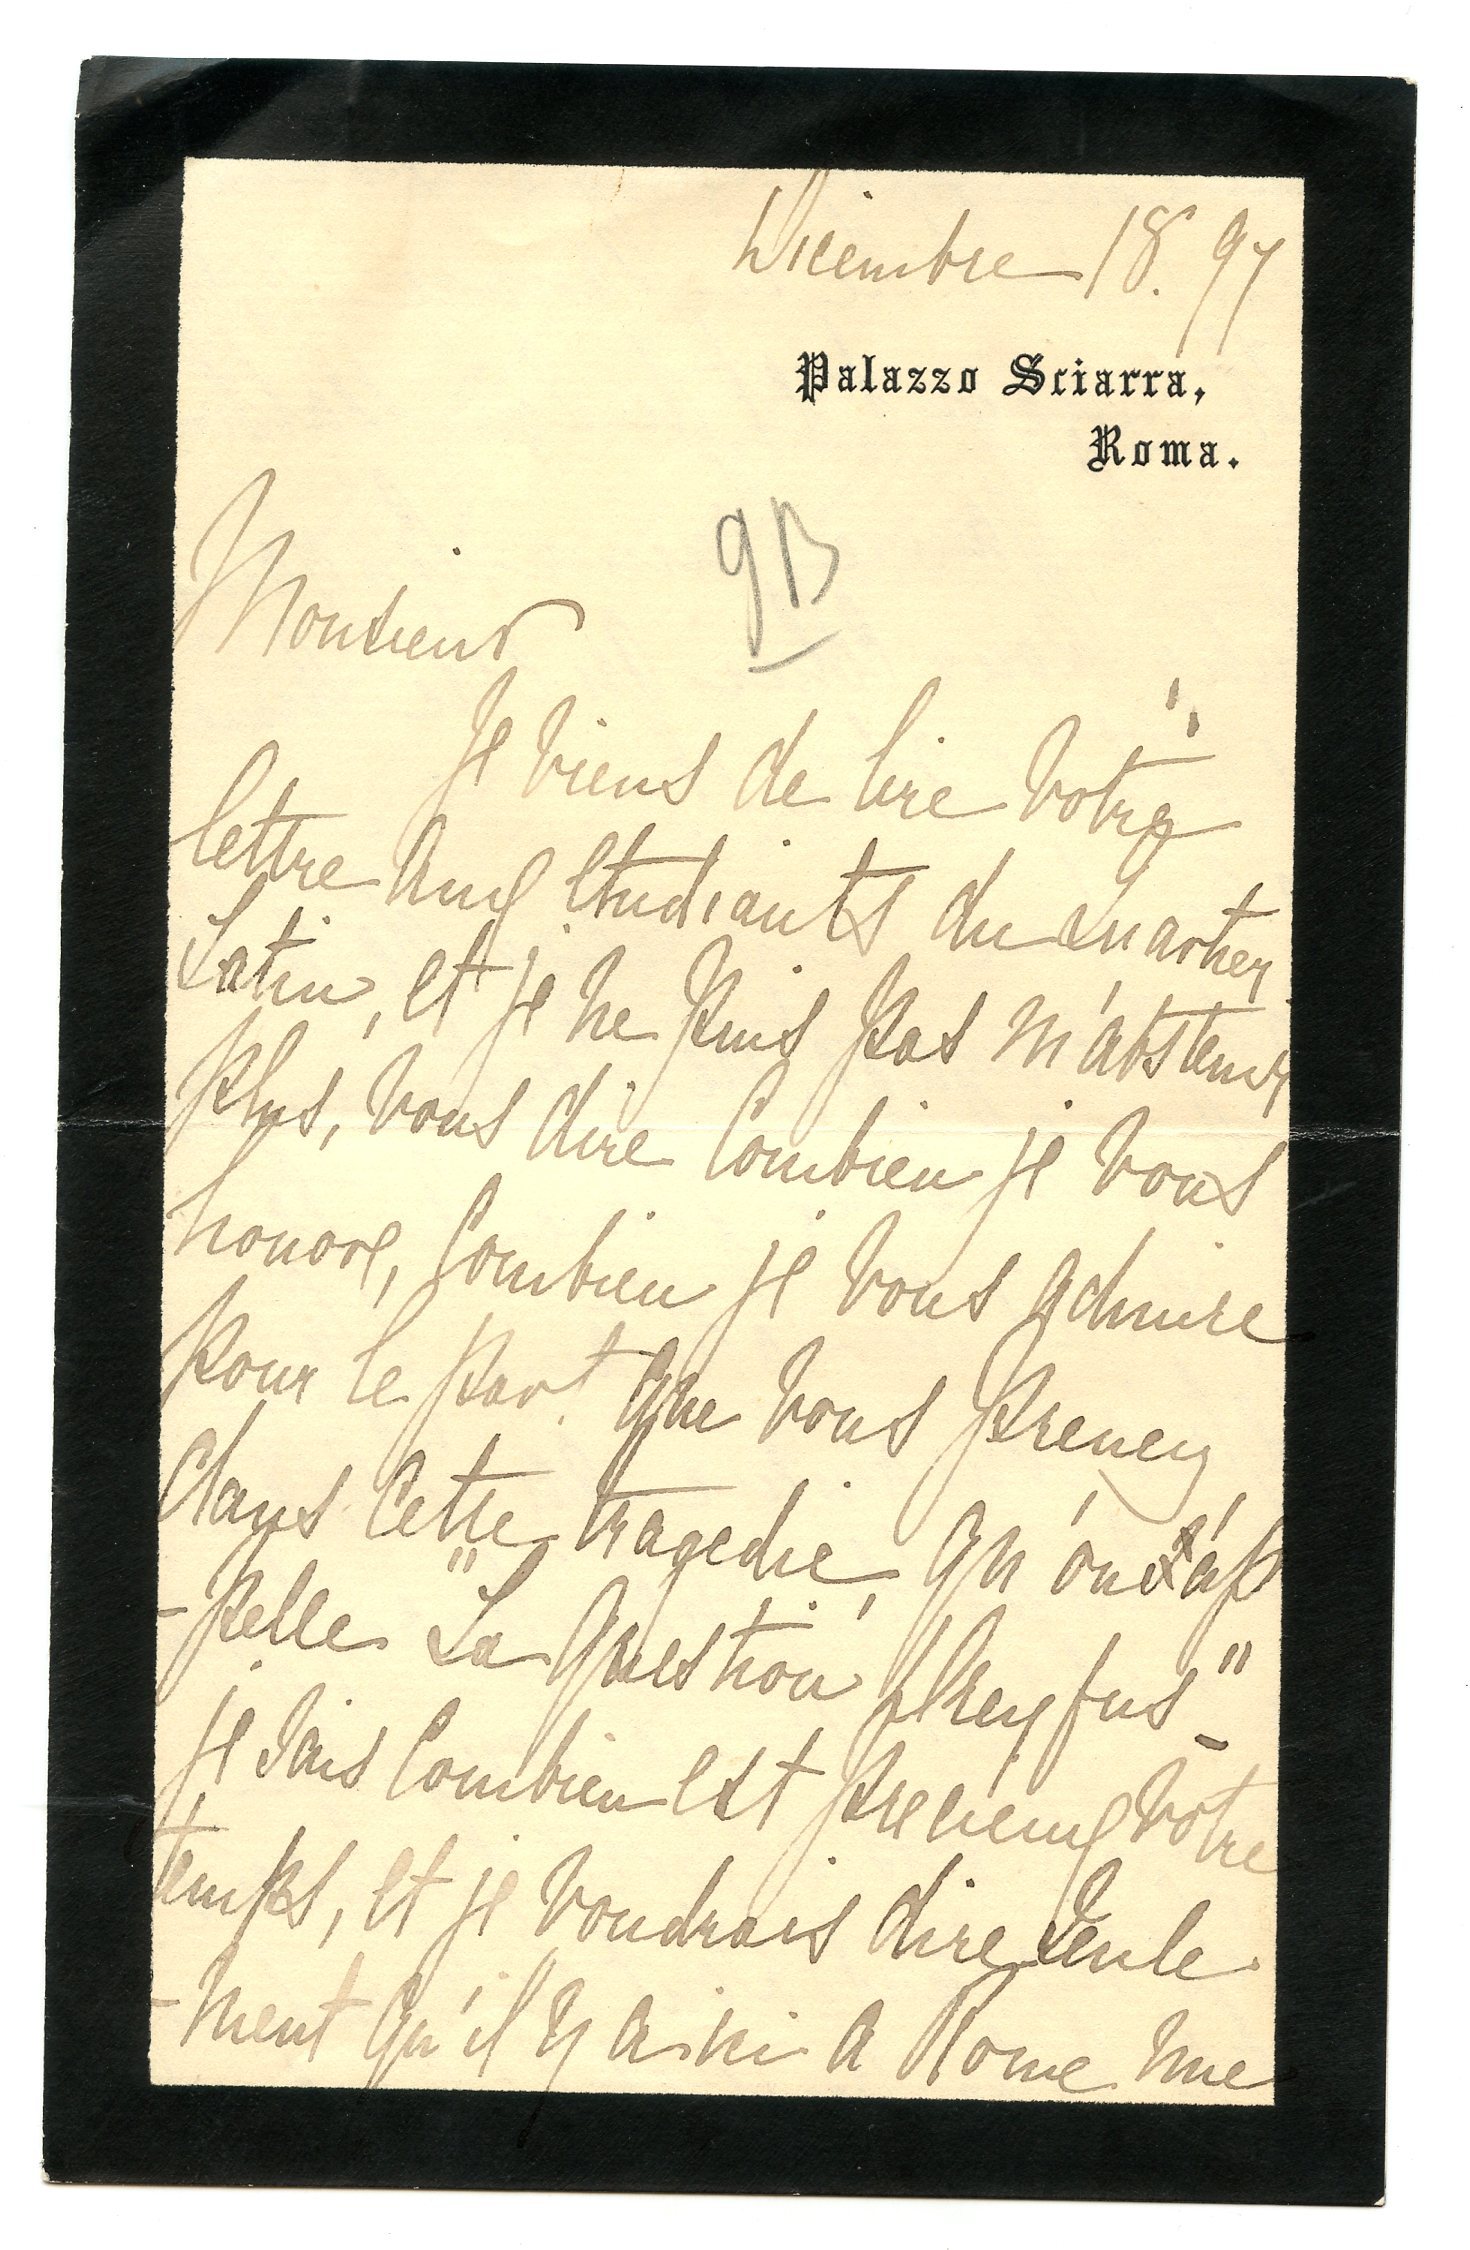 Dicembre 18. 97
Palazzo Sciarra,
Roma.
9B
Monsieur
Je viens de lire votre "
lettre aux etudiants du Quartier
Latin, et je ne puis pas m'abstenir
plus, vous dire combien je vous
honore, combien je vous admire
pour le part que vous prenez
dans cette tragedie, qu'on ap
-pelle "La question Dreyfus" _
je sais combien est precieux votre
temps, et je voudrais dire seule
-ment qu'il y a ici a Rome une